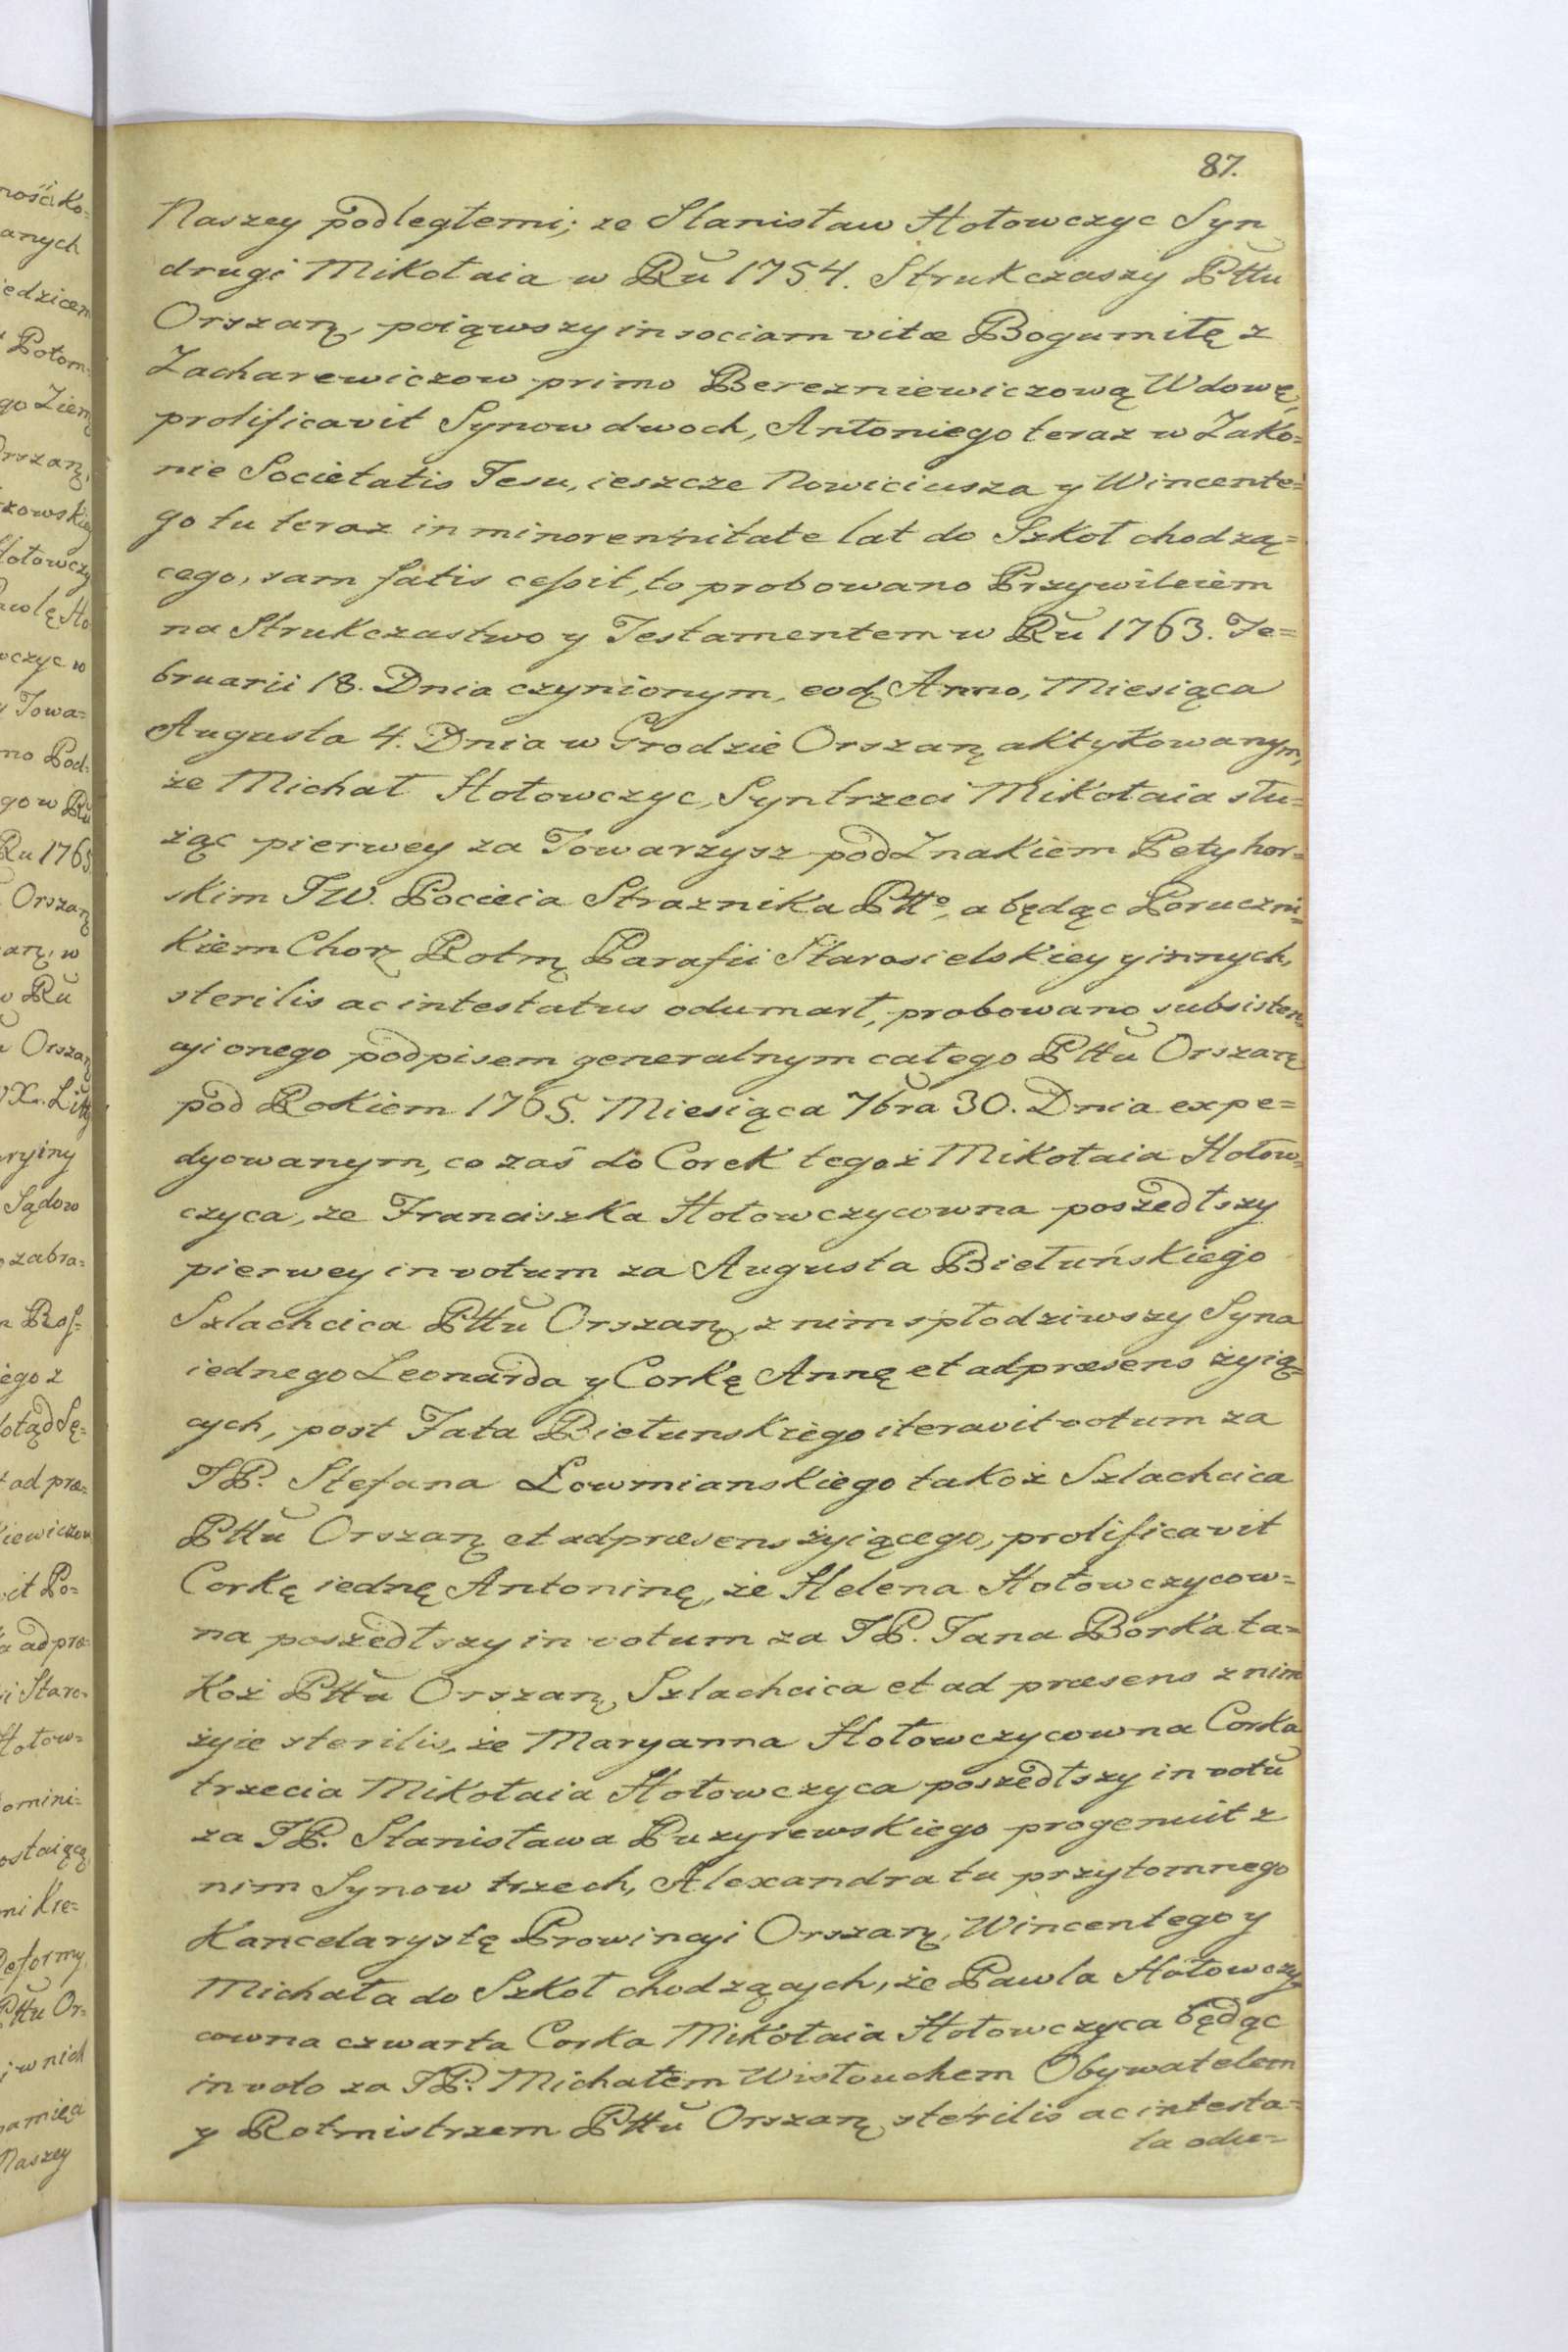 87.
Naszey podległemi; ze Stanisław Hołowczyc Syn
drugi Mikołaia w Rŭ 1754. Strukczaszy Pttŭ
Orszaɳ, poiąwszy in sociam vitæ Bogumiłę z
Zacharewiczow primo Berezniewiczową Wdowę,
prolificavit Synow dwoch, Antoniego teraz w Zako=
nie Societatis Jesu, ieszcze Nowiciusza y Wincente=
go tu teraz in minorennitate lat do Szkoł chodzą=
cego, sam fatis ceſsit, to probowano Przywileiem
na Strukczastwo y Testamentem w Rŭ 1763. Fe=
bruarii 18. Dnia czynionym, eod Anno, Miesiąca
Augusta 4. Dnia w Grodzie Orszaɳ aktykowanym,
że Michał Hołowczyc, Syn trzeci Mikołaia słu=
żąc pierwey za Towarzysz pod Znakiem Petyhor=
skim JW. Pocieia Straznika Ptto, a będąc Poruczni=
kiem Chorɀ Rotmɀ Parafii Starosielskiey y innych,
sterilis ac intestatus odumarł, probowano subsisten=
cyi onego podpisem generalnym całego Pttŭ Orszaɳ
pod Rokiem 1765. Miesiąca 7bra 30. Dnia expe=
dyowanym, co zaś do Corek tegoż Mikołaia Hołow=
czyca, ze Franciszka Hołowczycowna poszedłszy
pierwey in votum za Augusta Biełuńskiego
Szlachcica Pttŭ Orszaɳ, z nim spłodziwszy Syna
iednego Leonarda y Corkę Annę et ad præsens żyią=
cych, post Fata Biełunskiego iteravit votum za
JP. Stefana Łowmianskiego takoż Szlachcica
Pttŭ Orszaɳ et ad præsens żyiącego, prolificavit
Corkę iednę Antoninę, że Helena Hołowczycow=
na poszedłszy in votum za JP. Jana Borka ta=
koż Pttŭ Orszaɳ, Szlachcica et ad præsens z nim
żyie sterilis, że Maryanna Hołowczycowna Corka
trzecia Mikołaia Hołowczyca poszedłszy in votŭ
za JP. Stanisława Puzyrewskiego progenuit z
nim Synow trzech, Alexandra tu przytomnego
Kancelarystę Prowincyi Orszaɳ, Wincentego y
Michała do Szkoł chodzących, że Pawla Hołowczy=
cowna czwarta Corka Mikołaia Hołowczyca będąc
in voto za JP. Michałem Wisłouchem Obywatelem
y Rotmistrzem Pttŭ Orszaɳ sterilis ac intesta=
ta odu=